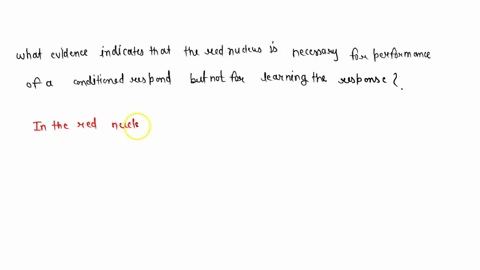 what evidence indicates that the red nucleus is necessary for performance
of a conditioned respond but not for learning the response ?.
In the red nucle